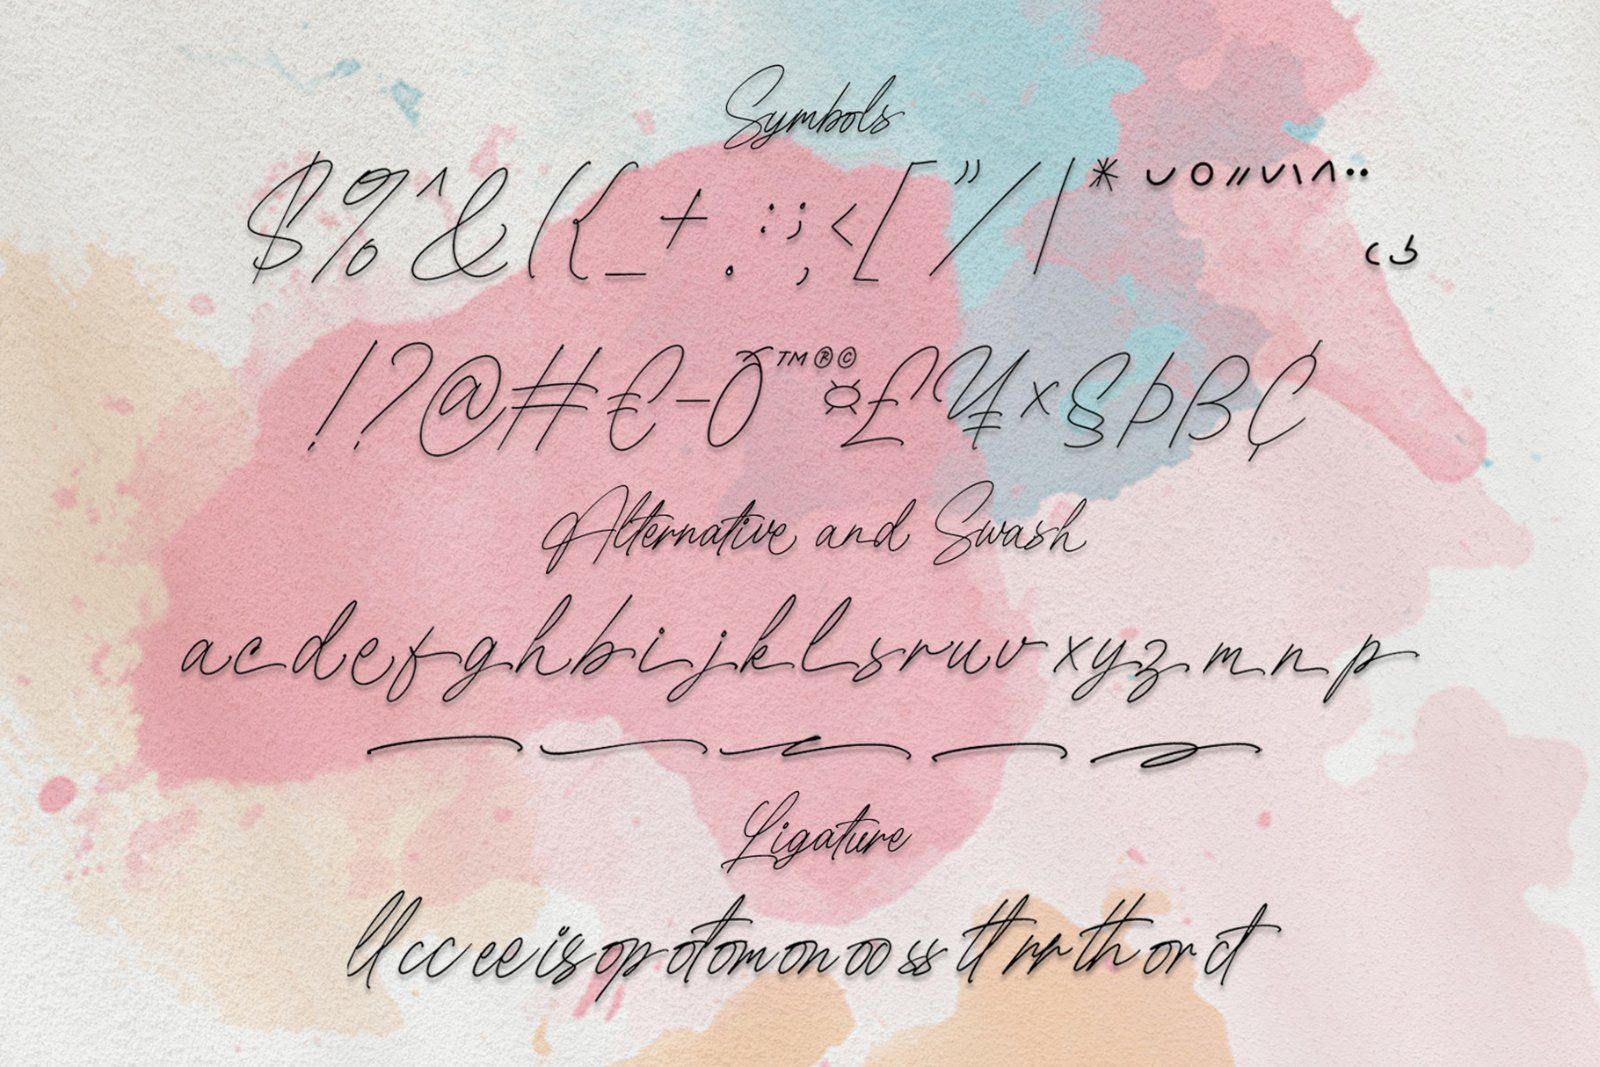 Symbols
$%^&({_+.:;,<["/|*˘°˝ˇ`^¨¸
!?@#€-Õ™®©¤£¥×§þß¢
Alternative and Swash
acdefghbijklsruvxyzmnp
Ligature
ll cc ee is op ot om on oo ss tt rr th or ct